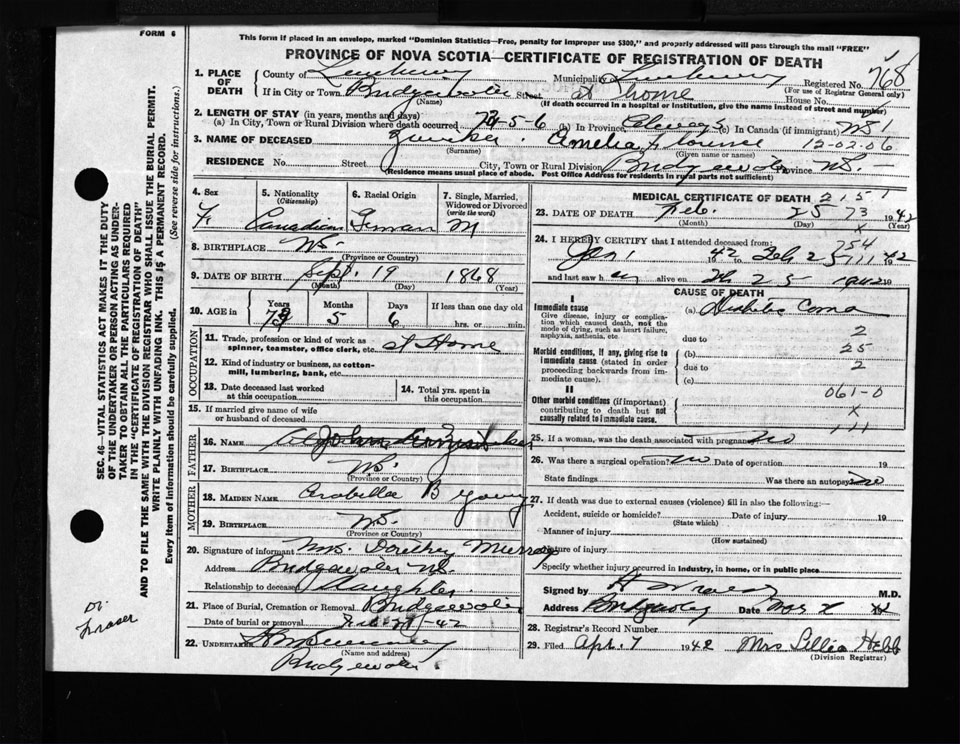 FORM 6
This form if placed in an envelope, marked "Dominion Statistics—Free, penalty for improper use $300," and properly addressed will pass through the mail "FREE"
PROVINCE OF NOVA SCOTIA—CERTIFICATE OF REGISTRATION OF DEATH
1. PLACE OF DEATH
County of Lunenburg Municipality of Lunenburg Registered No. 768
(For use of Registrar General only)
If in City or Town Bridgewater Street at home House No.
(Name) (If death occurred in a hospital or institution, give the name instead of street and number)
2. LENGTH OF STAY (in years, months and days)
(a) In City, Town or Rural Division where death occurred 73-5-6 (b) In Province Always (c) In Canada (if immigrant) NS 1
3. NAME OF DECEASED Amelia Florence 12-02-06
(Surname) (Given name or names)
RESIDENCE No. Street City, Town or Rural Division Bridgewater Province NS.
(Residence means usual place of abode. Post Office Address for residents in rural parts not sufficient)
4. Sex F
5. Nationality (Citizenship) Canadian
6. Racial Origin German
7. Single, Married, Widowed or Divorced (write the word) M
8. BIRTHPLACE NS.
(Province or Country)
9. DATE OF BIRTH Sept. 19 1868
(Month) (Day) (Year)
10. AGE in Years 73 Months 5 Days 6 If less than one day old hrs. or min.
OCCUPATION
11. Trade, profession or kind of work as spinner, teamster, office clerk, etc. at Home
12. Kind of industry or business, as cotton-mill, lumbering, bank, etc.
13. Date deceased last worked at this occupation
14. Total yrs. spent in this occupation
15. If married give name of wife or husband of deceased
FATHER
16. Name John
17. Birthplace NS.
(Province or Country)
MOTHER
18. Maiden Name Arabella B Young
19. Birthplace NS.
(Province or Country)
20. Signature of informant Mrs. Dorothy Murray
Address Bridgewater NS.
Relationship to deceased Daughter
21. Place of Burial, Cremation or Removal Bridgewater
Date of burial or removal Feb 27-42
22. Undertaker
(Name and address)
Bridgewater.
MEDICAL CERTIFICATE OF DEATH 2151
23. DATE OF DEATH Feb. 25 73 1942
(Month) (Day) (Year)
x
24. I HEREBY CERTIFY that I attended deceased from:
254
Jan 1 1942 to Feb 25 111 1942
and last saw her alive on Feb 25 1942
CAUSE OF DEATH
I
Immediate cause
Give disease, injury or complication which caused death, not the mode of dying, such as heart failure, asphyxia, asthenia, etc.
(a) Diabetic Coma
2
due to
25
Morbid conditions, if any, giving rise to immediate cause (stated in order proceeding backwards from immediate cause).
(b)
2
due to
(c)
II
061-0
Other morbid conditions (if important) contributing to death but not causally related to immediate cause.
x
111
25. If a woman, was the death associated with pregnancy no
26. Was there a surgical operation? no Date of operation 19
State findings Was there an autopsy no
27. If death was due to external causes (violence) fill in also the following:—
Accident, suicide or homicide? Date of injury 19
(State which)
Manner of injury
(How sustained)
Nature of injury
Specify whether injury occurred in industry, in home, or in public place
Signed by M.D.
Address Bridgewater Date
28. Registrar's Record Number
29. Filed Apr. 7 1942 Mrs Lillia Hebb
(Division Registrar)
SEC. 46—VITAL STATISTICS ACT MAKES IT THE DUTY
OF THE UNDERTAKER OR PERSON ACTING AS UNDER-
TAKER TO OBTAIN ALL THE PARTICULARS REQUIRED
IN THE "CERTIFICATE OF REGISTRATION OF DEATH"
AND TO FILE THE SAME WITH THE DIVISION REGISTRAR WHO SHALL ISSUE THE BURIAL PERMIT.
WRITE PLAINLY WITH UNFADING INK. THIS IS A PERMANENT RECORD.
Every item of Information should be carefully supplied. (See reverse side for instructions.)
Dr. Fraser